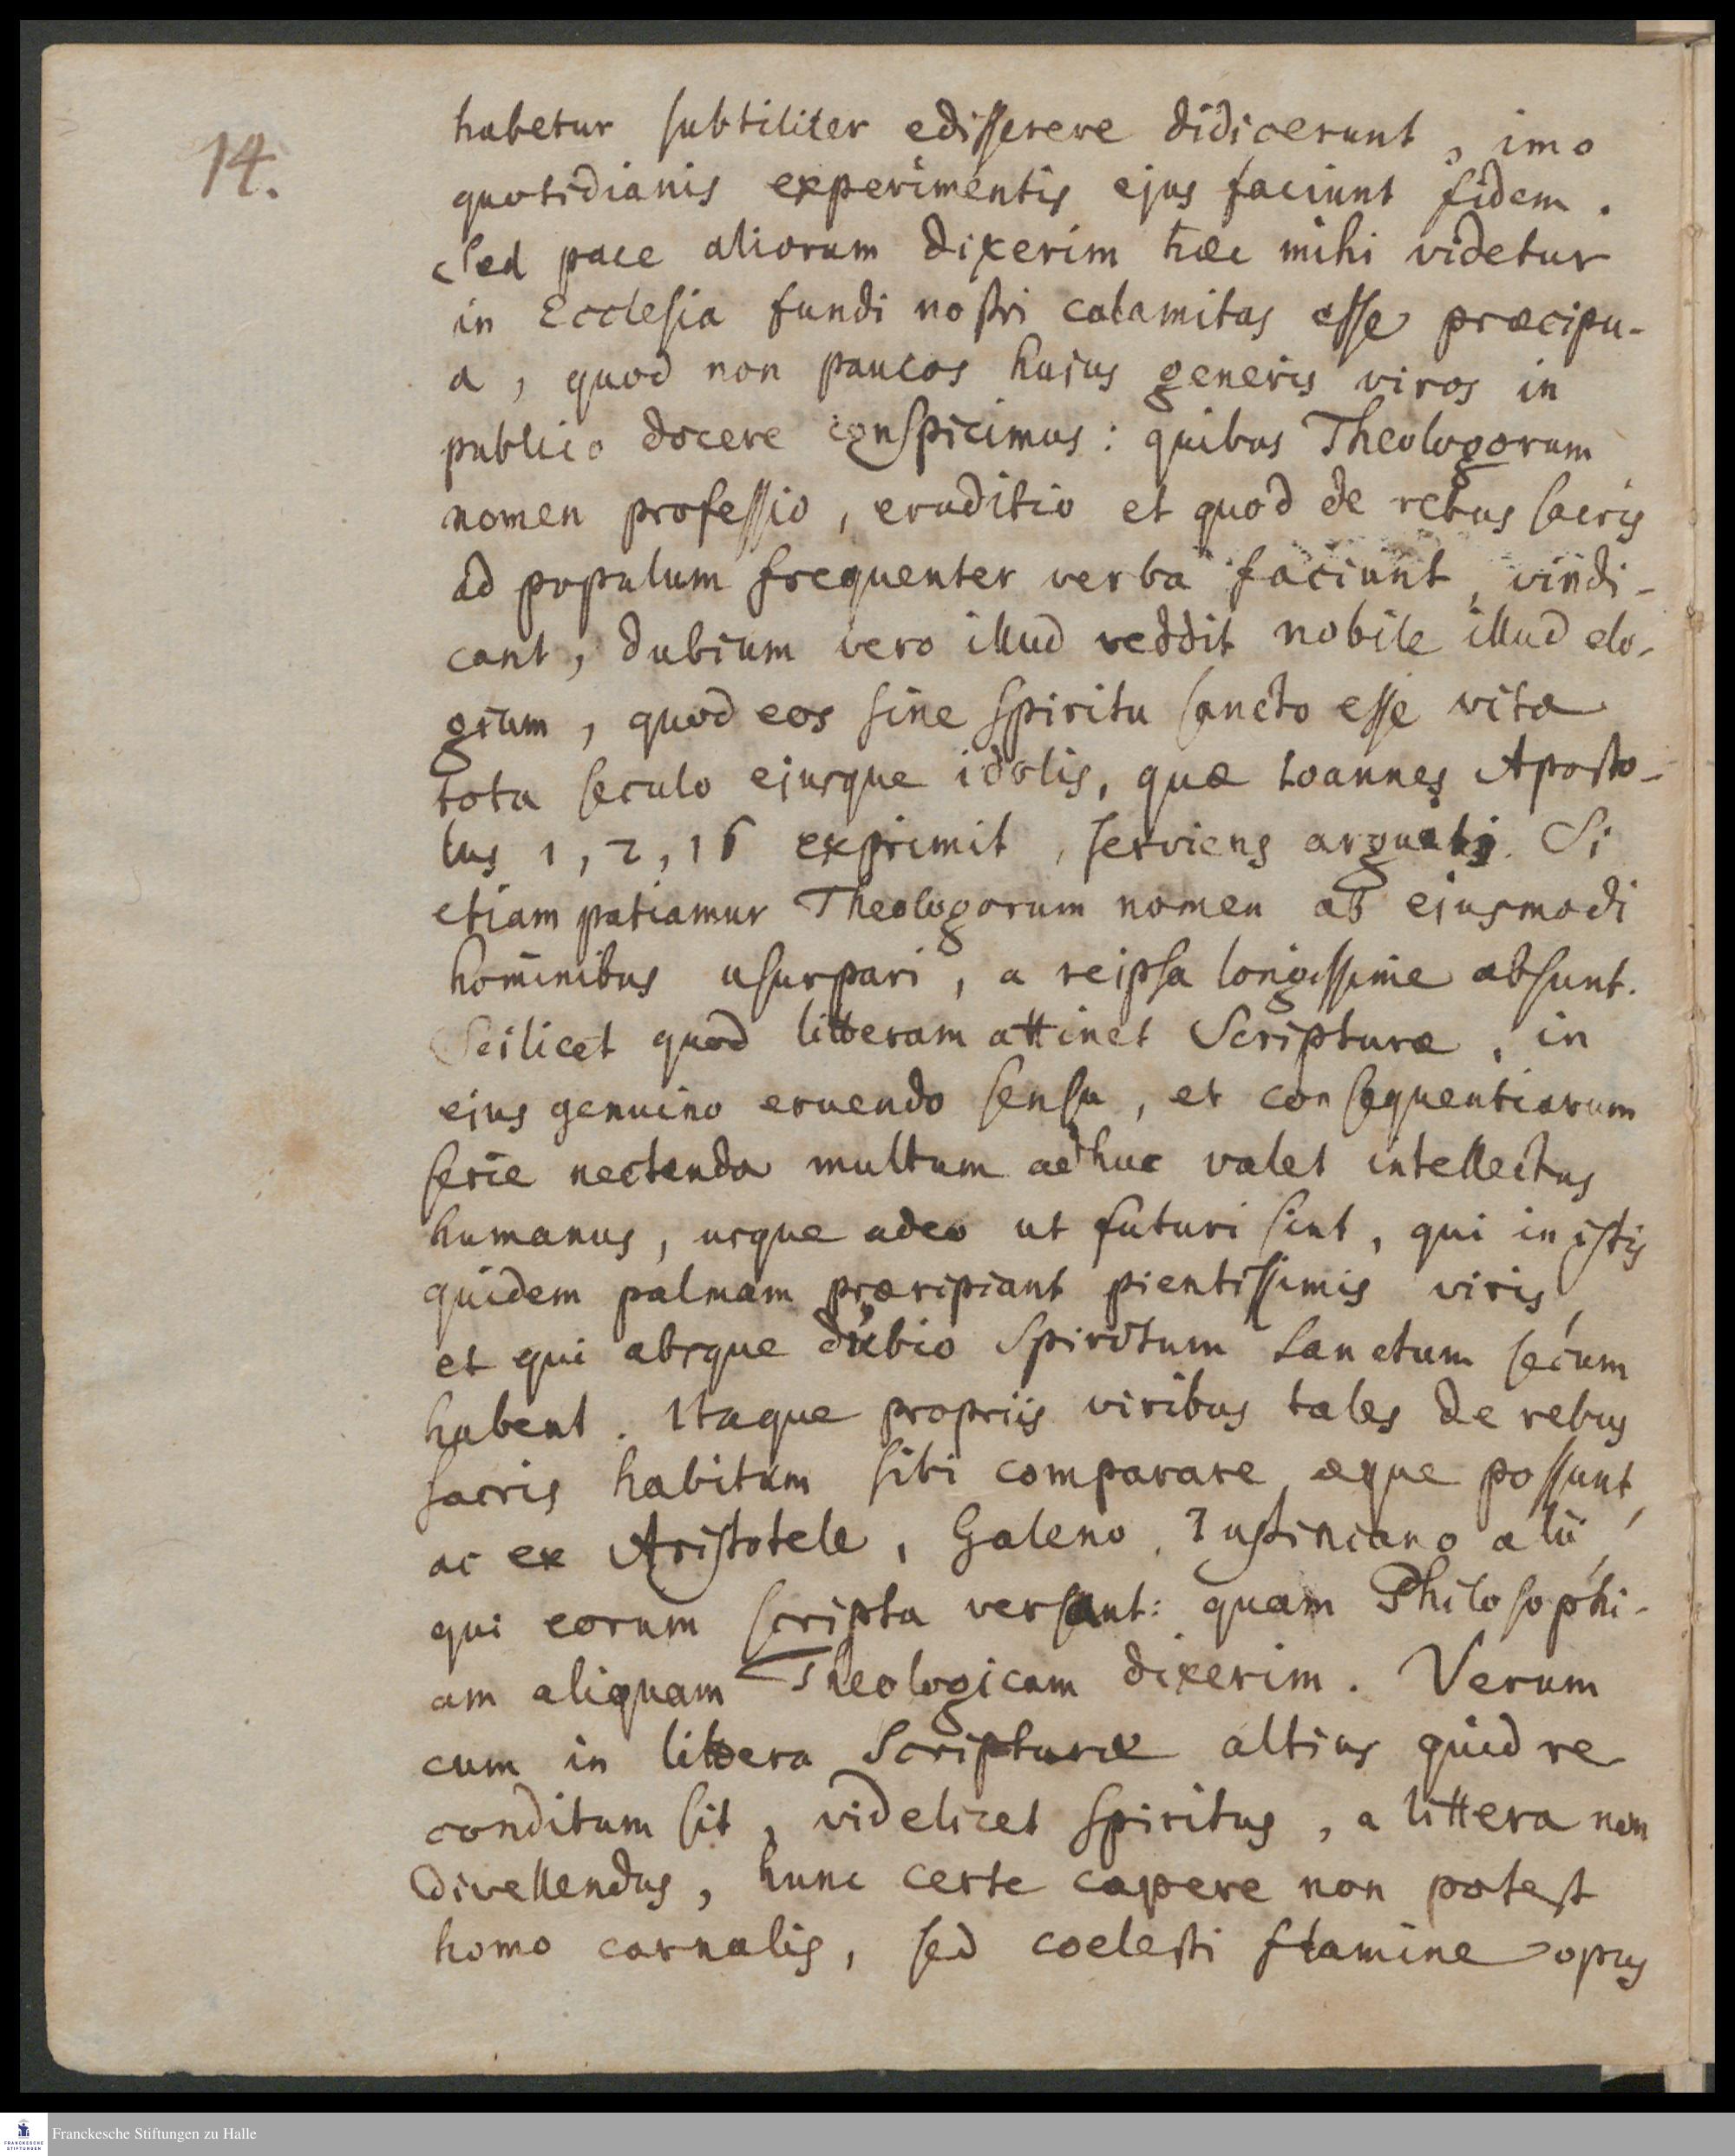 14.
habetur subtiliter edisserere didicerunt, imo
quotidianis experimentis ejus faciunt fidem.
Sed pace aliorum dixerim hæc mihi videtur
in Ecclesia fundi nostri calamitas esse præcipu-
a, quod non paucos hujus generis viros in
publico docere conspicimus: quibus Theologorum
nomen professio, eruditio et quod de rebus sacris
ad populum frequenter verba faciunt, vindi-
cant, dubium vero illud reddit nobile illud elo-
gium, quod eos sine Spiritu sancto esse vita
tota seculo ejusque idolis, quæ Ioannes Aposto-
lus 1, 2, 16 exprimit, serviens arguat. Si
etiam patiamur Theologorum nomen ab ejusmodi
hominibus usurpari, a reipsa longissime absunt.
Scilicet quod litteram attinet Scripturæ, in
ejus genuino eruendo sensu, et consequentiarum
serie nectenda multum adhuc valet intellectus
humanus, usque adeo ut futuri sint, qui in istis
quidem palmam præripiant pientissimis viris,
et qui absque dubio Spiritum Sanctum secum
habent. Itaque propriis viribus tales de rebus
sacris habitum sibi comparare æque possunt,
ac ex Aristotele, Galeno, Iustiniano alii,
qui eorum scripta versant: quam Philosophi-
am aliquam Theologicam dixerim. Verum
cum in littera Scripturæ altius quid re
conditum sit, videlicet Spiritus, a littera non
divellendus, hunc certe capere non potest
homo carnalis, sed coelesti flamine opus
Franckesche Stiftungen zu Halle
FRANCKESCHE
STIFTUNGEN